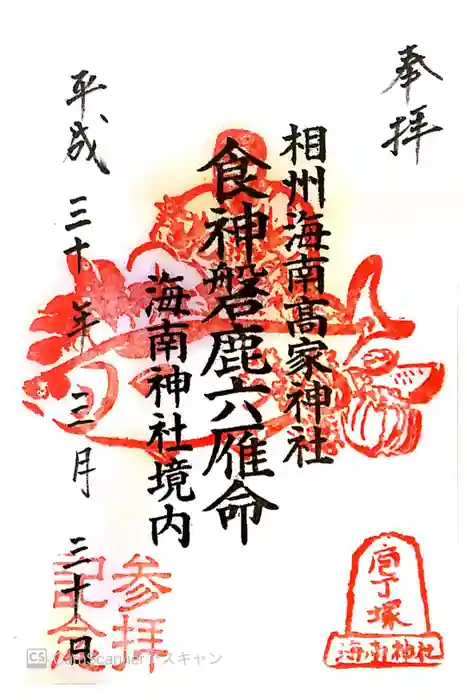 奉拝
相州海南髙家神社
食神磐鹿六雁命
海南神社境内
平成三十年三月三十日
参拝
記念
庖丁塚
海南神社
CS CamScannerでスキャン